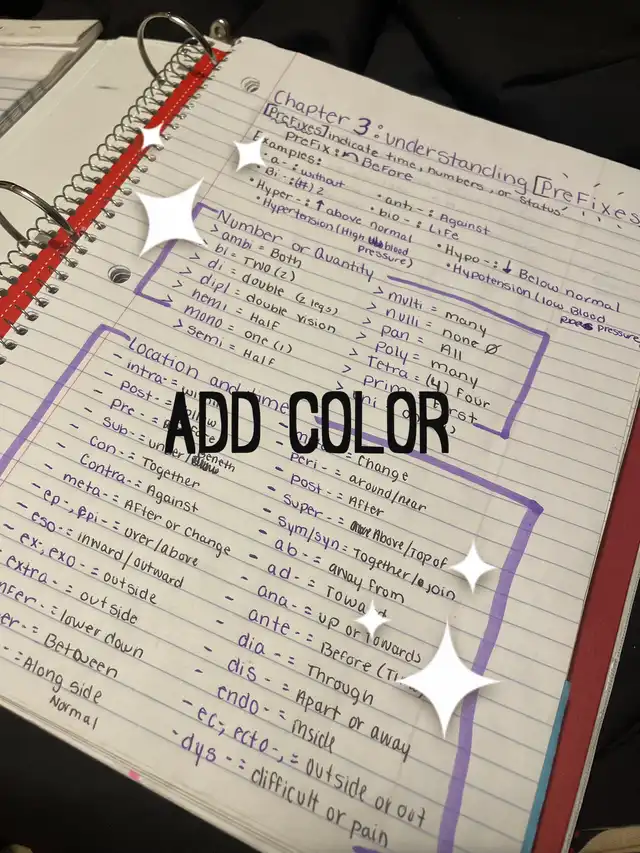 Chapter 3: understanding [PreFixes]
[PreFixes] indicate time, numbers, or status
PreFix: Before
Examples:
• a-: without
• Bi-: (#) 2
• Hyper-: ↑ above normal
• Hypertension (High blood pressure)
• ant-: Against
• bio-: LiFe
• Hypo-: ↓ Below normal
• Hypotension (low Blood pressure)
Number or Quantity
> ambi = Both
> bi = TWO (2)
> di = double
> dipl = double vision (2 legs)
> hemi = Half
> mono = one (1)
> semi = Half
> multi = many
> nulli = none Ø
> pan = All
> poly = many
> Tetra = (4) Four
> prim = First
Location and time
- intra-:
- post-:
- pre-:
- sub-: under/
- con-: Together
- Contra-: Against
- meta-: AFter or change
- ep-, epi-: over/above
- eso-: inward/outward
- ex-, exo-: outside
- extra-: outside
lower down
Between
Along side
Normal
Change
- peri-: around/near
- post-: AFter
- super-: Above/Top of
- sym/syn = Together/join
- ab-: away from
- ad-: Toward
- ana-: up or Towards
- ante-: Before
- dia-: Through
- dis-: Apart or away
- endo-: inside
- ec-, ecto-, = outside or out
- dys-: difficult or pain
ADD COLOR